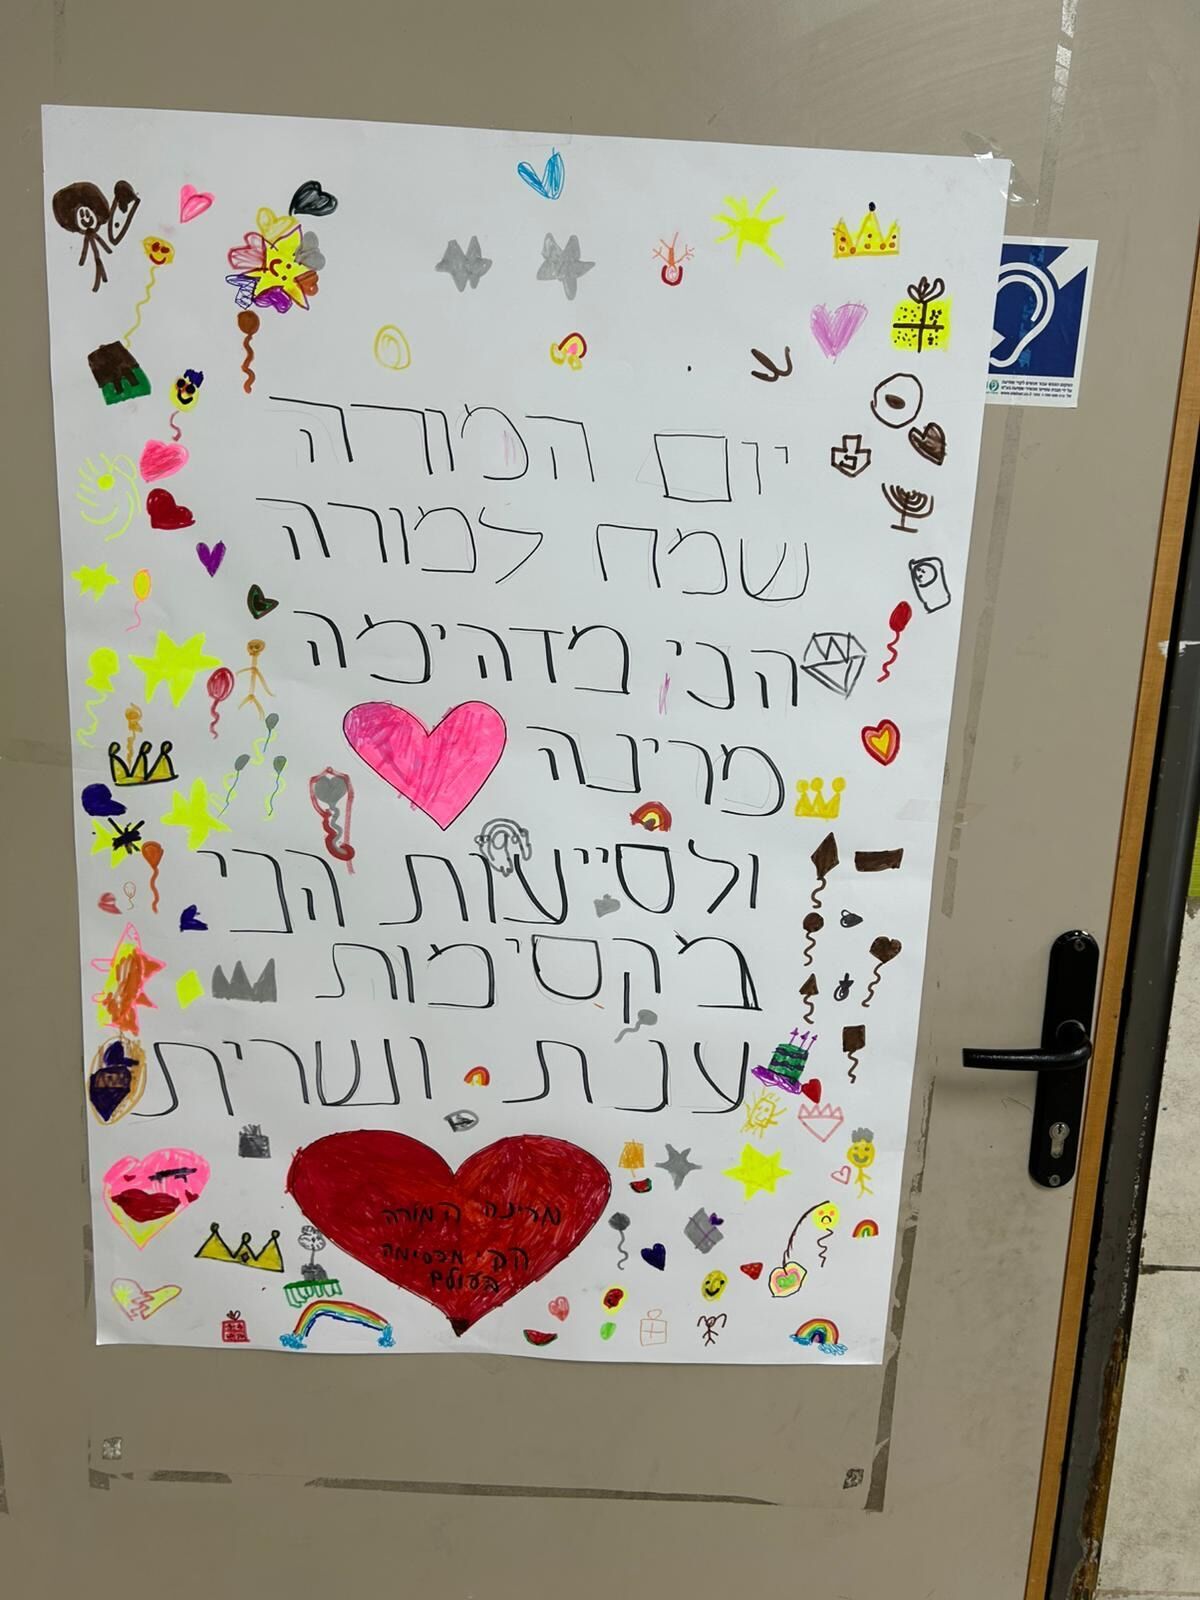 יום המורה
שמח למורה
הכי מדהימה
מרינה
ולסייעות הכי
מקסימות
ענת ושרית
מרינה המורה
הכי מקסימה
בעולם